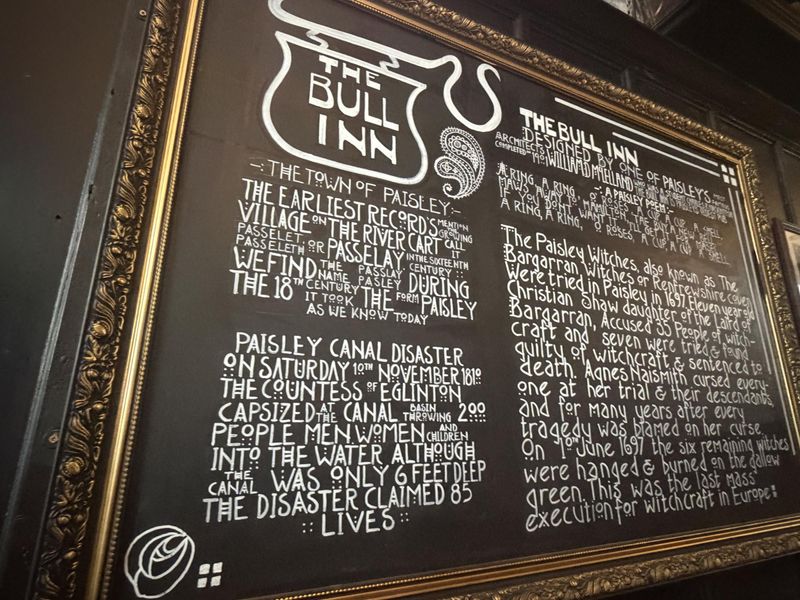 THE
BULL
INN
-: THE TOWN OF PAISLEY:-
THE EARLIEST RECORD'S MENTION
VILLAGE ON THE RIVER CART GROWING
PASSELET, OR PASSELAY CALL IT
PASSELETH IN THE SIXTEENTH
WE FIND THE PASSLAY CENTURY
NAME PASLEY DURING
THE 18TH CENTURY THE FORM PAISLEY
IT TOOK
AS WE KNOW TODAY
PAISLEY CANAL DISASTER
ON SATURDAY 10TH NOVEMBER 1810
THE COUNTESS OF EGLINTON
CAPSIZED AT THE CANAL BASIN THROWING 200
PEOPLE MEN, WOMEN AND CHILDREN
INTO THE WATER ALTHOUGH
THE CANAL WAS ONLY 6 FEET DEEP
THE DISASTER CLAIMED 85
LIVES
THE BULL INN
DESIGNED BY ONE OF PAISLEY'S
ARCHITECT
COMPLETED IN 1901
-: A PAISLEY POEM:-
A RING, A RING, O' ROSES, A CUP, A CUP, A SHELL
A RING, A RING, O ROSES, A CUP A CUP A SHELL
The Paisley Witches, also known as The
Bargarran Witches or Renfrewshire coven
Were tried in Paisley in 1697. Eleven year old
Christian Shaw daughter of the Laird of
Bargarran, Accused 35 People of witch-
craft and seven were tried & found
guilty of witchcraft, & sentenced to
death. Agnes Naismith cursed every-
one at her trial & their descendants,
and for many years after every
tragedy was blamed on her curse.
On June 1697 the six remaining witches
were hanged & burned on the gallow
green. This was the last mass
execution for witchcraft in Europe